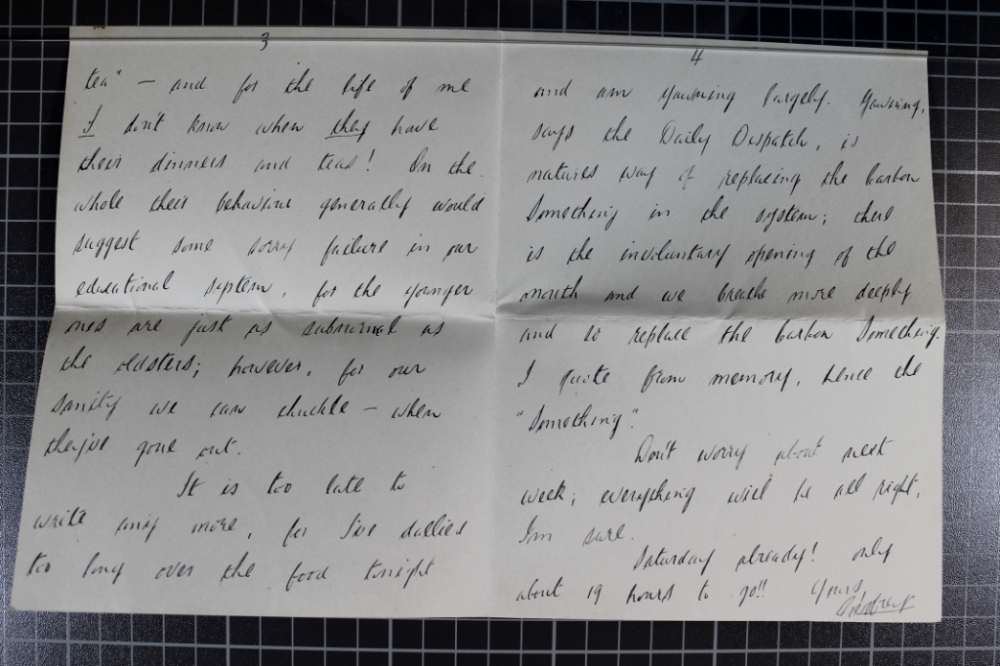 3
tea" — and for the life of me
I don't know when they have
their dinners and teas! On the
whole their behaviour generally would
suggest some sorry failure in our
educational system, for the younger
ones are just as subnormal as
the oldsters; however, for our
sanity we can chuckle — when
they've gone out.
It is too late to
write any more, for I've dallied
too long over the food tonight
4
and am yawning largely. Yawning,
says the Daily Dispatch, is
natures way of replacing the carbon
Something in the system; there
is the involuntary opening of the
mouth and we breathe more deeply
and so replace the carbon Something.
I quote from memory, hence the
"Something".
Don't worry about next
week; everything will be all right,
I'm sure.
Saturday already! only
about 19 hours to go!! Yours